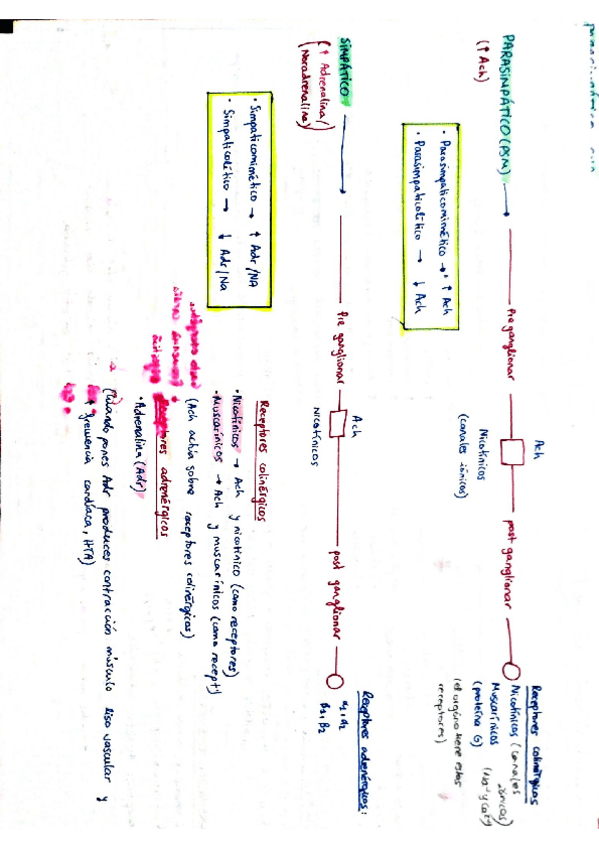 PARASIMPÁTICO (PSM)
(↑ Ach)
Pre ganglionar
Ach
Nicotínicos
(canales iónicos)
post ganglionar
Receptores colinérgicos
Nicotínicos (canales
iónicos)
Muscarínicos
(proteína G)
(el órgano tiene estos
receptores)
• Parasimpaticomimético → ↑ Ach
• Parasimpaticolítico → ↓ Ach
SIMPÁTICO
(↑ Adrenalina/
Noradrenalina)
Pre ganglionar
Ach
Nicotínicos
post ganglionar
Receptores adrenérgicos:
α1, α2
β1, β2
• Simpaticomimético → ↑ Adr/NA
• Simpaticolítico → ↓ Adr/Na
Receptores colinérgicos
• Nicotínicos → Ach y nicotínico (como receptores)
• Muscarínicos → Ach y muscarínicos (como recept)
(Ach actúa sobre receptores colinérgicos)
Receptores adrenérgicos
• Adrenalina (Adr)
(Cuando pones Adr produces contracción músculo liso vascular y
↑ frecuencia cardíaca, HTA)